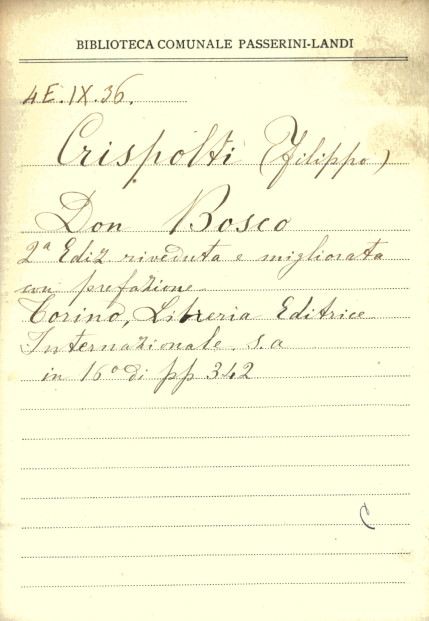 BIBLIOTECA COMUNALE PASSERINI-LANDI
4E.IX.36.
Crispolti (Filippo)
Don Bosco
2ª Ediz riveduta e migliorata
con prefazione
Torino, Libreria Editrice
Internazionale s.a
in 16º di pp 342
C